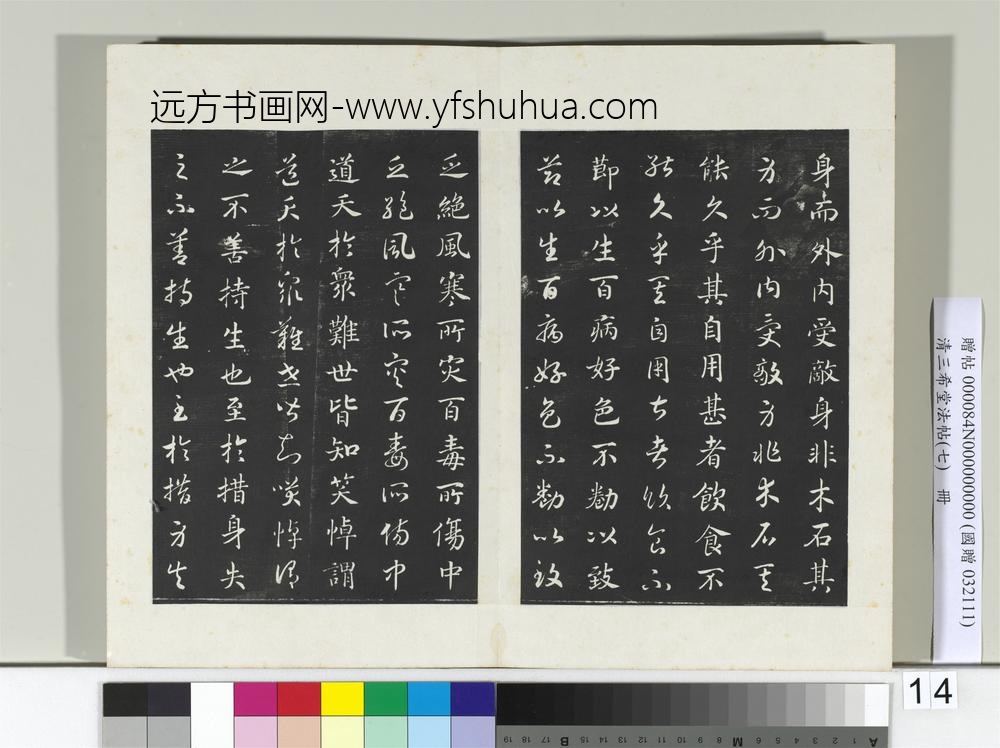 远方书画网-www.yfshuhua.com
身而外内受敵身非木石其
身而外内受敵身非木石其
能久乎其自用甚者飲食不
能久乎其自用甚者飲食不
節以生百病好色不勌以致
節以生百病好色不勌以致
乏絕風寒所灾百毒所傷中
乏絕風寒所灾百毒所傷中
道夭於衆難世皆知笑悼謂
道夭於衆難世皆知笑悼謂
之不善持生也至於措身失
之不善持生也至於措身失
贈帖 000084N000000000 (國贈 032111)
清三希堂法帖(七) 冊
14
A 1 2 3 4 5 6 M 8 9 10 11 12 13 14 15 B 17 18 19